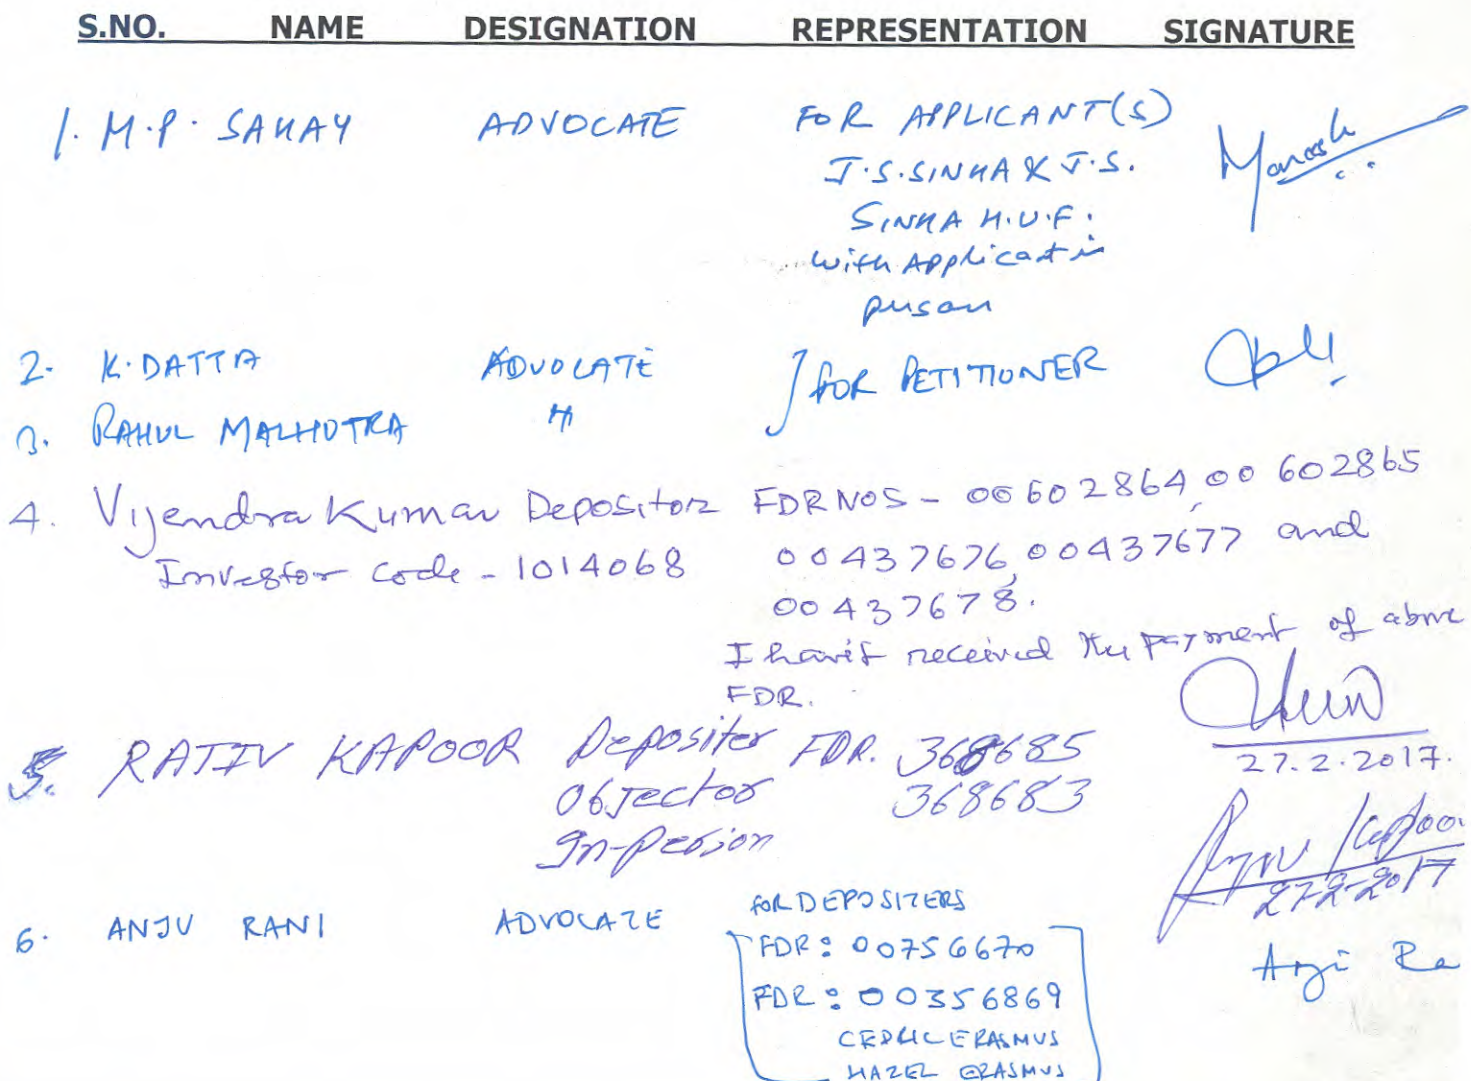 S.NO. NAME DESIGNATION REPRESENTATION SIGNATURE
1. M.P. SAHAY ADVOCATE FOR APPLICANT(S)
J.S. SINHA & J.S.
SINHA H.U.F.
with Applicant in
person
Manash
2. K. DATTA ADVOCATE } FOR PETITIONER
3. RAHUL MALHOTRA "
4. Vijendra Kumar Depositor FDR NOS - 00602864, 00602865
Investor code - 1014068 00437676, 00437677 and
00437678.
I havit received the payment of above
FDR.
27.2.2017.
5. RAJIV KAPOOR Depositer FDR. 368685
Objector 368683
In-person
Rajiv Kapoor
27-2-2017
6. ANJU RANI ADVOCATE FOR DEPOSITERS
FDR: 00756670
FDR: 00356869
CEDRIC ERASMUS
HAZEL ERASMUS